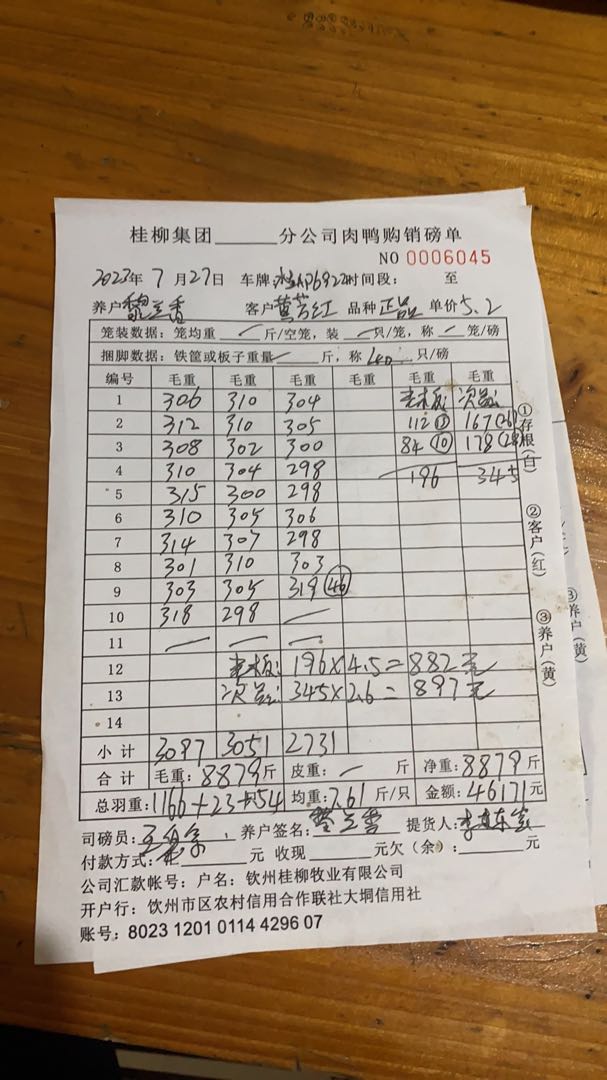 桂柳集团______分公司肉鸭购销磅单
NO 0006045
2023年 7月27日 车牌: 时间段: 至
养户 黎兰香 客户 黄 红 品种 正品 单价 5.2
笼装数据: 笼均重 / 斤/空笼, 装 / 只/笼, 称 / 笼/磅
捆脚数据: 铁筐或板子重量 / 斤, 称 40 只/磅
编号 毛重 毛重 毛重 毛重 毛重 毛重
1 306 310 304 次品
2 312 310 305 112 167
3 308 302 300 84 ⑩ 178
4 310 304 298 196 345
5 315 300 298
6 310 305 306
7 314 307 298
8 301 310 303
9 303 305 319 (46)
10 318 298 —
11 — — —
12 196×4.5=882元
13 次品: 345×2.6=897元
14
小计 3097 3051 2731
合计 毛重: 8879斤 皮重: — 斤 净重: 8879斤
总羽重: 1166+23+54 均重: 7.61斤/只 金额: 46171元
司磅员: 养户签名: 黎兰香 提货人:
付款方式: 元 收现______元欠(余):______元
公司汇款帐号: 户名: 钦州桂柳牧业有限公司
开户行: 饮州市区农村信用合作联社大垌信用社
账号: 8023 1201 0114 4296 07
①存根(白)
②客户(红)
③养户(黄)
③养户(黄)